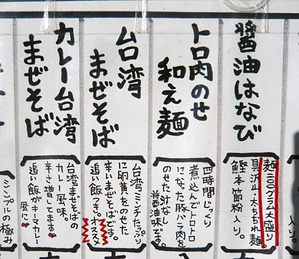 醤油はなび
麺三〇〇グラム大盛り
具沢山・太ちぢれ麺
鰹本節粉入り。
トロ肉のせ
和え麺
四時間じっくり
煮込んでトロトロ
になった豚バラ肉を
のせた汁なし
醤油そば。
台湾
まぜそば
台湾ミンチたっぷり
に卵黄をのせた、
辛いまぜそばです。
追い飯つき。オススメ
カレー台湾
まぜそば
台湾まぜそばの
カレー風味。
辛さ増してます
追い飯がキーマカレー
風に
シンプルの極み